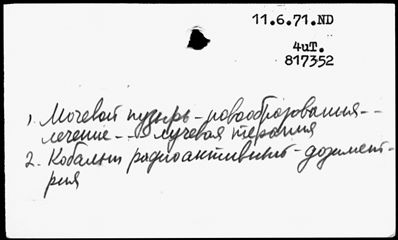 11.6.71.ND
4чт.
817352
1. Мочевой пузырь - новообразования - -
лечение - - - лучевая терапия
2. Кобальт радиоактивный - дозимет-
рия